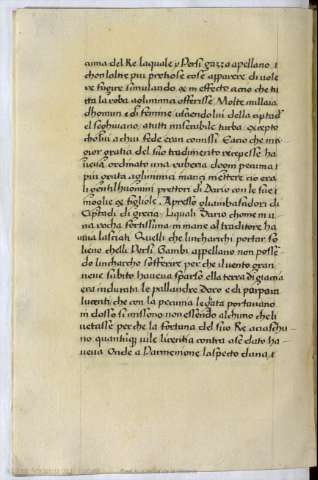 cuma del Re laquale y Persi gazza apellano
chon loltre piu pretiose cose apparere di uole
re fugire simulando &c in effecto acio che tu
tta la roba aglunima offerisse Molte millaia
dhomini & di femine uscendo lui della cipta d
el seghuano, a tutti miserabile turba excepto
cholui a chui fede eran comissi Eacio che ma
gor gratia del suo tradimento recepesse ha
ueua ordinato una richeria doom penima
piu grata aglinimici manci mettere cio era
li gentilhuomini prettori di Dario con le sue
moglie & figliole. Apresso gli ambasiadori di
Ciptadi di grecia. Liquali Dario chome in u
na rocha fortissima in mane al traditore ha
ueua lasciati Quelli che lincharichi portar so
lieno chelli Persi Gambi appellano non posse
do lincharcho sofferire per che il uento gran
neue subito haueua sparso ella terra di giaccia
era indurata le pallandre doro e di purpura
lucenti che con la pecunia legata portauano
in dosso si missono non essendo alchuno che li
uetasse per che la fortuna del suo Re aciaschu
no quantinqi uile licentia contra a se dato ha
ueua Onde a Parmenione laspecto dana